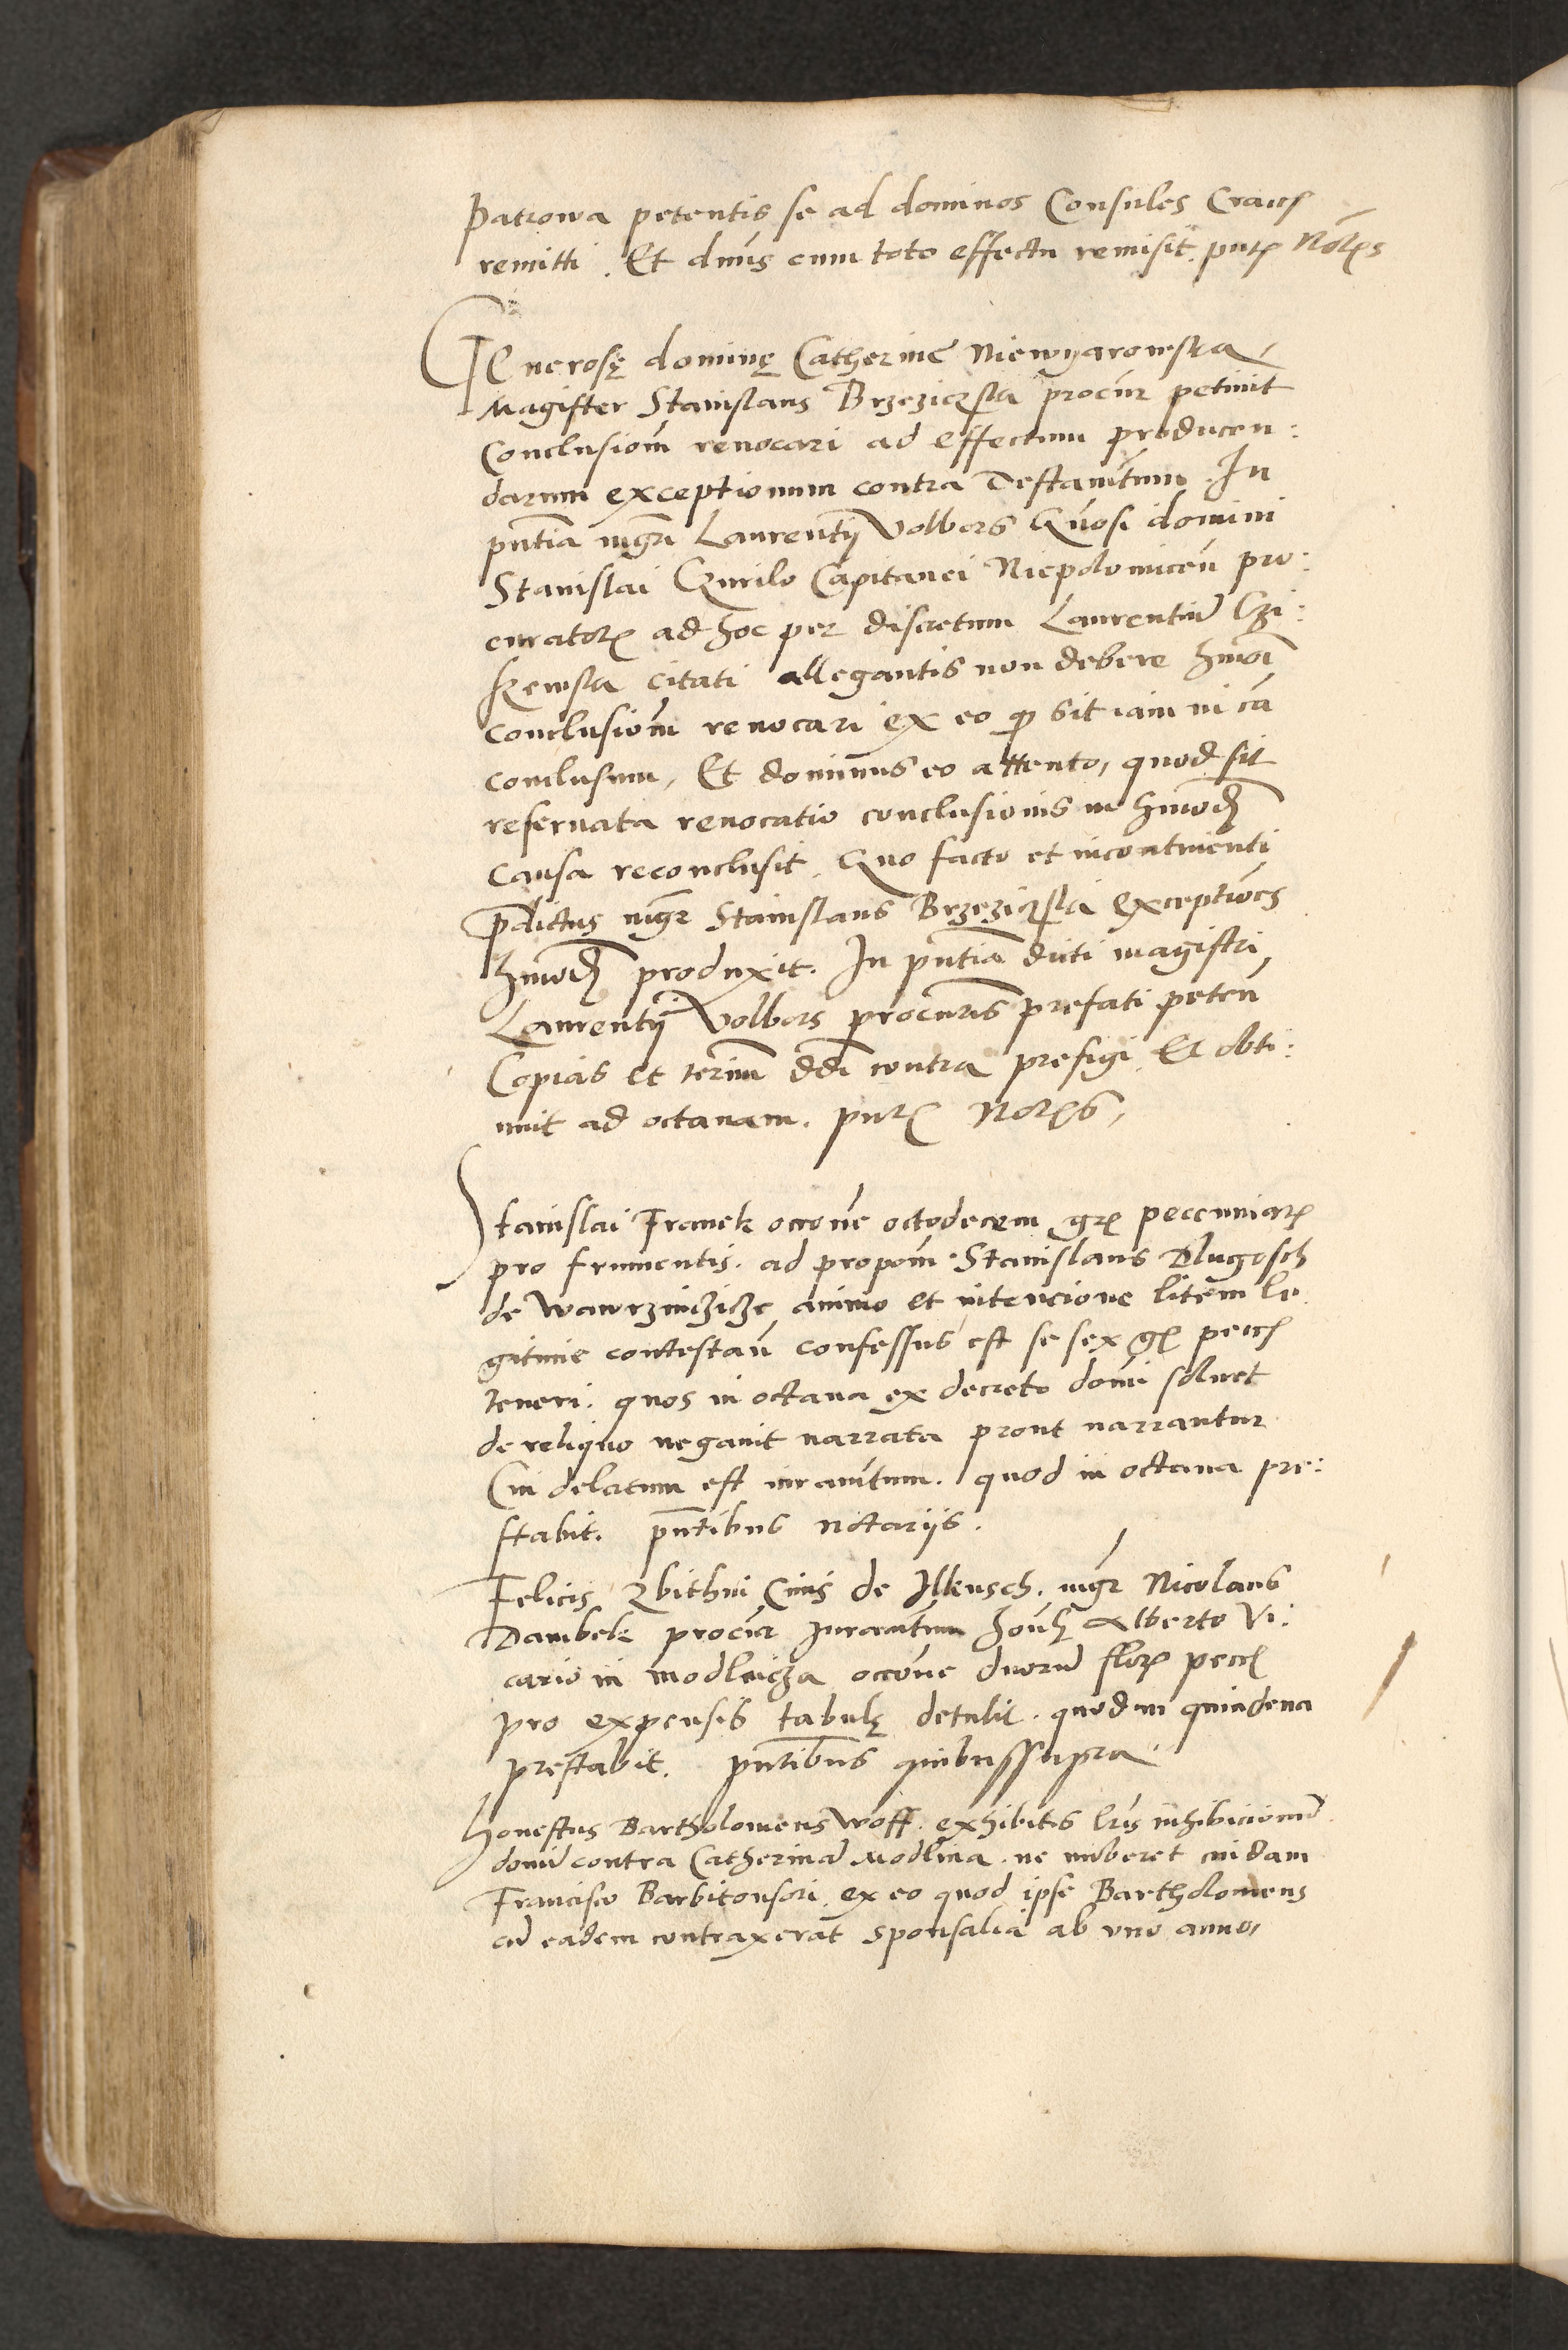 Patrowa petentis se ad dominos Consules Cracꝭ
remitti. Et dnus cum toto effectu remisit. pntꝭ Notꝭs
Generosę dominę Catherine Niewyarowska
Magister Stanislaus Brzeziczska procur petiuit
Conclusiom reuocari ad effectum producen:
darum exceptionum contra Testamtum. In
pntia mgri Laurentij Volbors Gnosi domini
Stanislai Curilo Capitanei Niepolomiceñ pro:
curatorꝭ ad hoc per discretum Laurentiũ Czi:
kewska citati allegantis non debere hmõi
conclusiom reuocari ex eo ꝙ sit iam in cã
conclusum, Et dominus eo attento, quod sit
reseruata reuocatio conclusionis in hmõdꝭ
causa reconclusit. Quo facto et incontinenti
pdictus mgr Stanislaus Brzeziczska exceptiões
hmõdꝭ produxit. In pntia dicti magistri
Laurentij Volbors procuris prefati peteñ
Copias et termi ddi contra prefigi Et obti:
nuit ad octauam. pntꝭ Notꝭs,
Stanislai Franek occõne octodecem grꝭ pecuniarꝭ
pro frumentis. ad propom Stanislaus Dlugosch
de Wawrzinczicze animo et intencione litem le
gitime contestañ confessus est se sex grꝭ pecꝭ
teneri. quos in octaua ex decreto domi soluet
de reliquo negauit narrata prout narrantur
Cui delatum est iuramtum. quod in octaua pre:
stabit. pntibus notarijs.
Felicis Zbithni Ciuis de Ilkusch. mgr Nicolaus
Dambek procur Juramtum honli Alberto Vi:
cario in modlnicza occõne duorũ florꝭ peccꝭ
pro expensis tabulę detulit. quod in quindena
prestabit. pntibus quibussupra
Honestus Bartholomeus Woff. exhibitis lris inhibicionũ
domi contra Catherinã Modlina. ne nuberet cuidam
Francisco Barbitonsori. ex eo quod ipse Bartholomeus
cũ eadem contraxerat sponsalia ab vno anno,